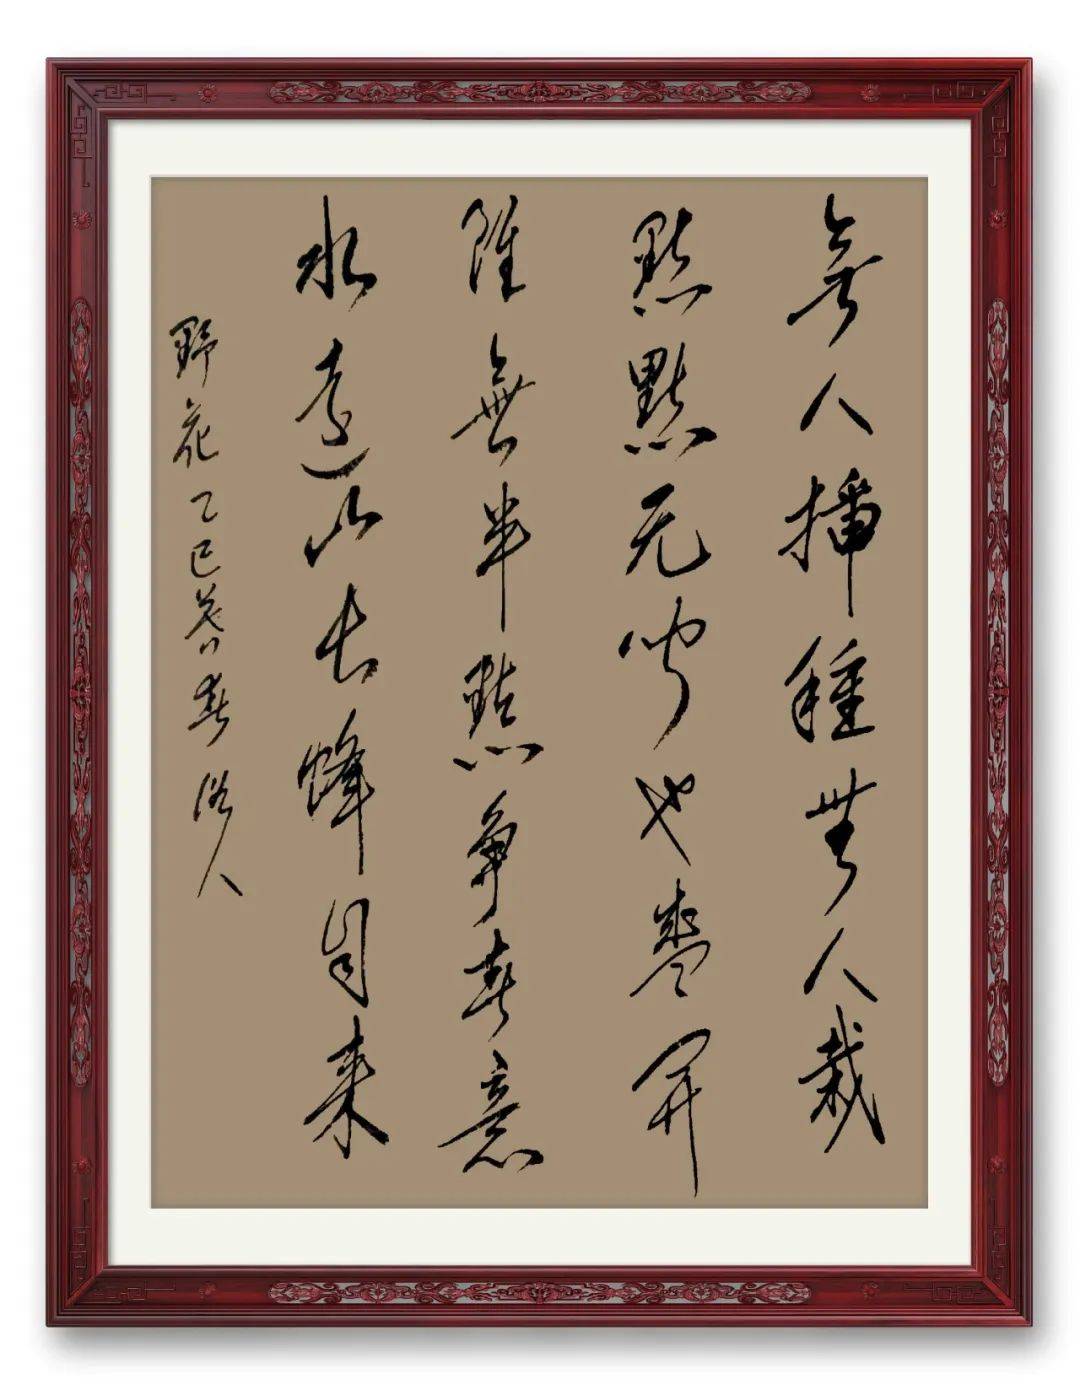 無人播種無人栽
默默无聞也盡開
雖無半點爭春意
水遠山長蜂自來
野花 乙巳暮春 俗人